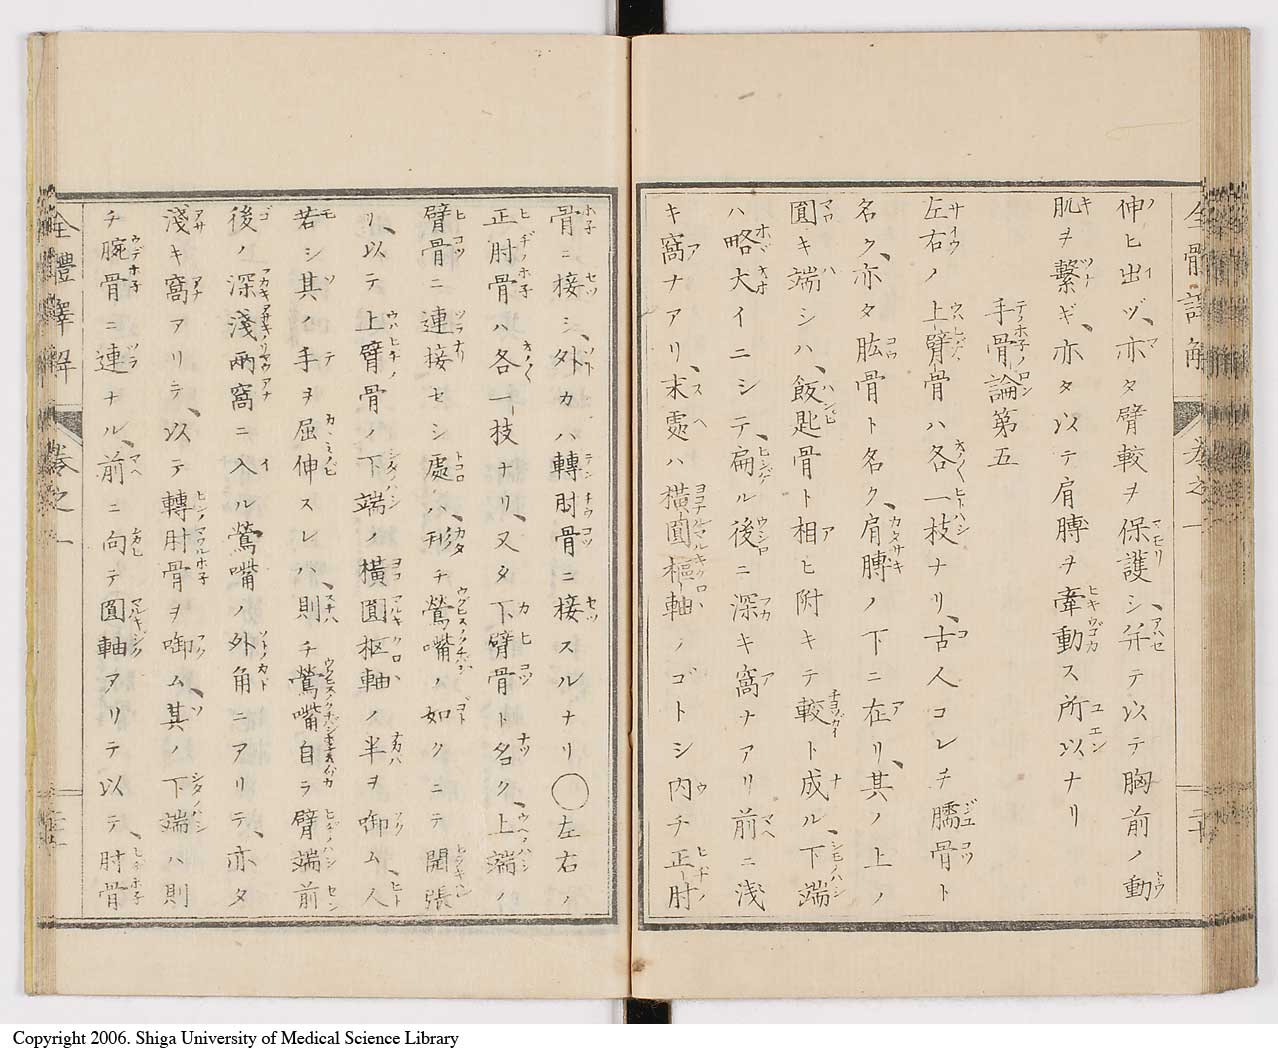 伸ヒ出ヅ、亦タ臂較ヲ保護シ、并テ以テ胸前ノ動
肌ヲ繋ギ、亦タ以テ肩膊ヲ牽動ス所以ナリ
手骨論第五
左右ノ上臂骨ハ各一枝ナリ、古人コレチ臑骨ト
名ク、亦タ肱骨ト名ク、肩膊ノ下ニ在リ、其ノ上ノ
圓キ端シハ、飯匙骨ト相ヒ附キテ較ト成ル、下端
ハ略大イニシテ、扁ル後ニ深キ窩ナアリ前ニ浅
キ窩ナアリ、末處ハ橫圓樞軸ノゴトシ内チ正肘
骨ニ接シ、外カハ轉肘骨ニ接スルナリ○左右ノ
正肘骨ハ各一枝ナリ、又タ下臂骨ト名ク、上端ノ
臂骨ニ連接セシ處ハ、形チ鶯嘴ノ如クニテ開張
リ、以テ上臂骨ノ下端ノ橫圓枢軸ノ半ヲ啣ム、人
若シ其ノ手ヲ屈伸スレハ、則チ鶯嘴自ラ臂端前
後ノ深淺兩窩ニ入ル鶯嘴ノ外角ニアリテ、亦タ
淺キ窩アリテ、以テ轉肘骨ヲ啣ム、其ノ下端ハ則
チ腕骨ニ連ナル、前ニ向テ圓軸アリテ以テ、肘骨
全體譯解
卷之一
Copyright 2006. Shiga University of Medical Science Library